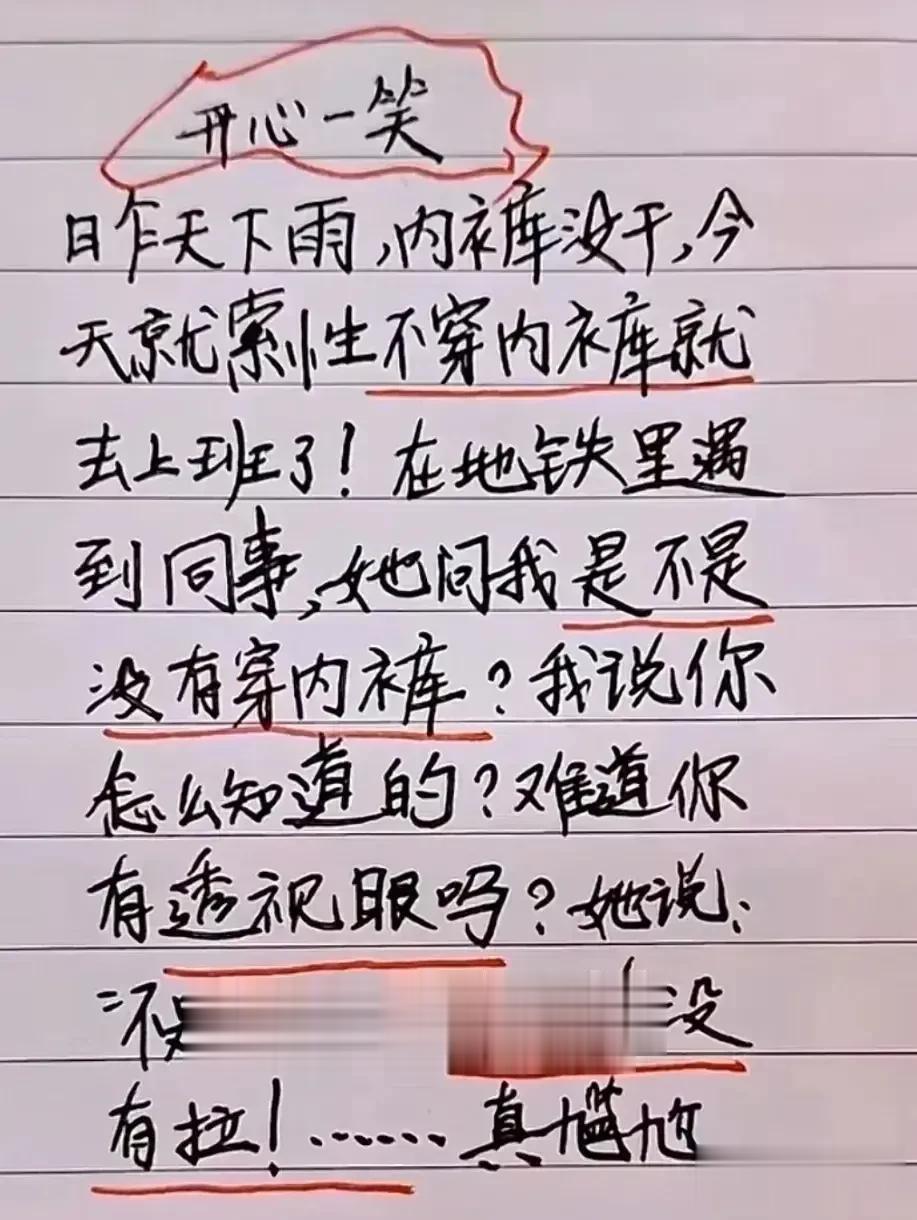 开心一笑
昨天下雨,内裤没干,今
天就索性不穿内裤就
去上班了!在地铁里遇
到同事,她问我是不是
没有穿内裤?我说你
怎么知道的?难道你
有透视眼吗?她说:
不 没
有拉!……真尴尬